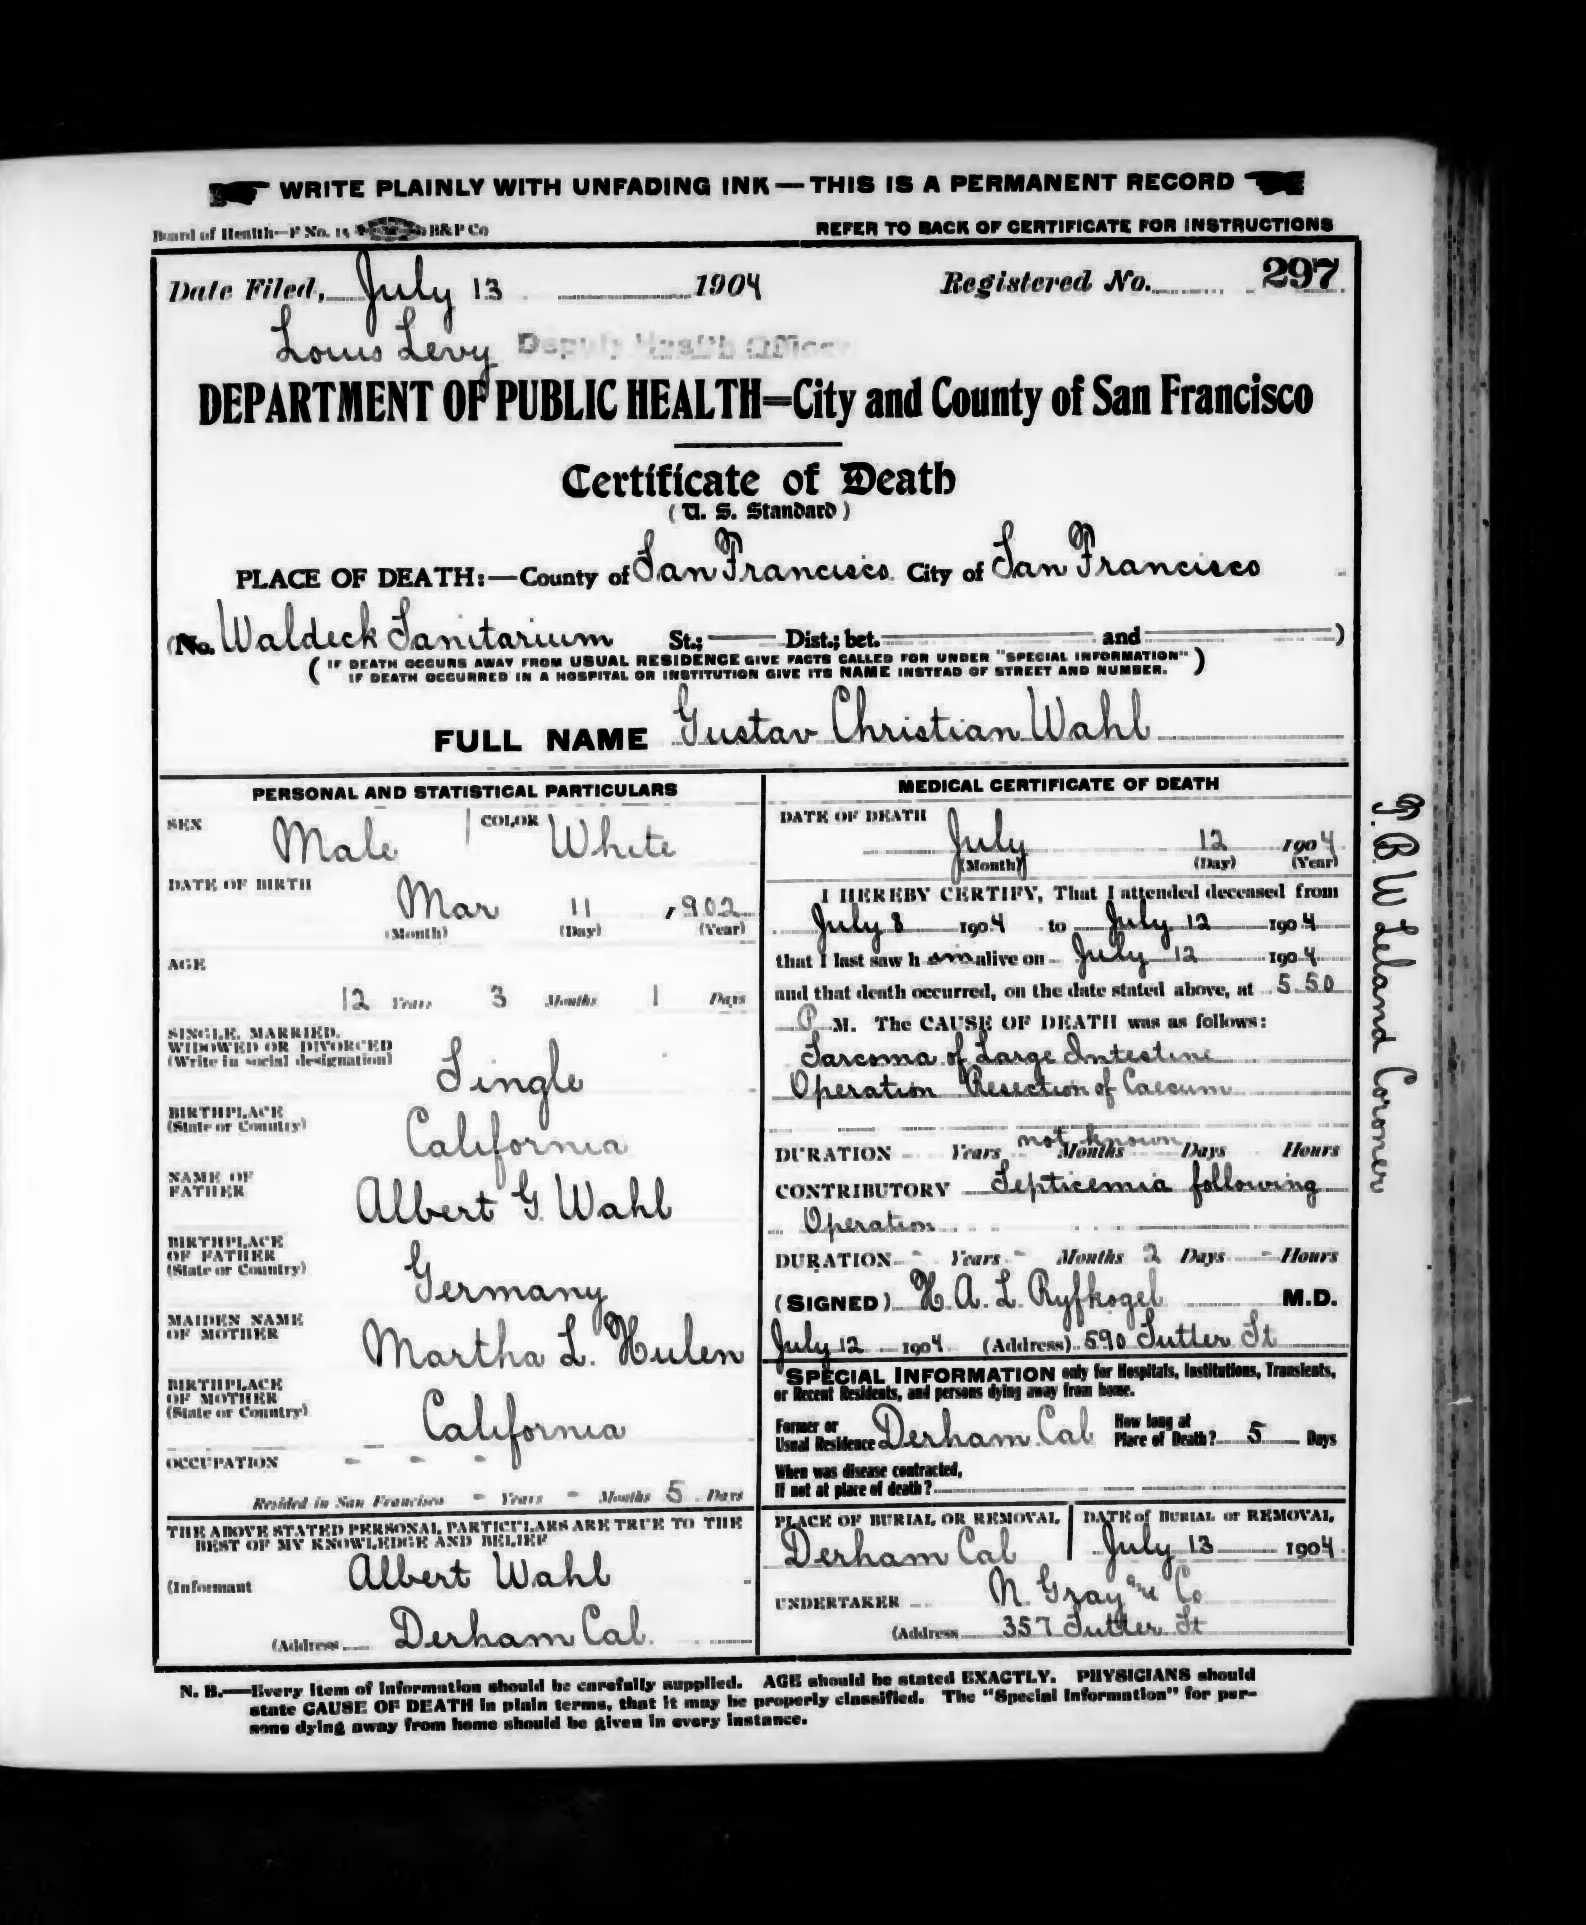 WRITE PLAINLY WITH UNFADING INK — THIS IS A PERMANENT RECORD
Board of Health—F No. 15 B&P Co REFER TO BACK OF CERTIFICATE FOR INSTRUCTIONS
Date Filed, July 13 1904 Registered No. 297
Louis Levy Deputy Health Officer
DEPARTMENT OF PUBLIC HEALTH=City and County of San Francisco
Certificate of Death
(U. S. Standard)
PLACE OF DEATH:—County of San Francisco City of San Francisco
(No. Waldeck Sanitarium St.; Dist.; bet. and )
( IF DEATH OCCURS AWAY FROM USUAL RESIDENCE GIVE FACTS CALLED FOR UNDER "SPECIAL INFORMATION" )
IF DEATH OCCURRED IN A HOSPITAL OR INSTITUTION GIVE ITS NAME INSTEAD OF STREET AND NUMBER.
FULL NAME Gustav Christian Wahl
PERSONAL AND STATISTICAL PARTICULARS
SEX Male COLOR White
DATE OF BIRTH
Mar 11 , 902
(Month) (Day) (Year)
AGE
12 Years 3 Months 1 Days
SINGLE, MARRIED,
WIDOWED OR DIVORCED
(Write in social designation)
Single
BIRTHPLACE
(State or Country)
California
NAME OF
FATHER
Albert G. Wahl
BIRTHPLACE
OF FATHER
(State or Country)
Germany
MAIDEN NAME
OF MOTHER
Martha L. Hulen
BIRTHPLACE
OF MOTHER
(State or Country)
California
OCCUPATION - - -
Resided in San Francisco - Years - Months 5 Days
THE ABOVE STATED PERSONAL PARTICULARS ARE TRUE TO THE
BEST OF MY KNOWLEDGE AND BELIEF
(Informant Albert Wahl
(Address Derham Cal.
MEDICAL CERTIFICATE OF DEATH
DATE OF DEATH
July 12 1904
(Month) (Day) (Year)
I HEREBY CERTIFY, That I attended deceased from
July 8 1904 to July 12 1904
that I last saw h im alive on July 12 1904
and that death occurred, on the date stated above, at 5 50
P M. The CAUSE OF DEATH was as follows:
Sarcoma of Large Intestine
Operation Resection of Caecum
not known
DURATION Years Months Days Hours
CONTRIBUTORY Septicemia following
Operation
DURATION - Years - Months 2 Days - Hours
(SIGNED) H. A. L. Ryfkogel M.D.
July 12 1904 (Address) 590 Sutter St
SPECIAL INFORMATION only for Hospitals, Institutions, Transients,
or Recent Residents, and persons dying away from home.
Former or
Usual Residence Derham Cal
How long at
Place of Death? 5 Days
When was disease contracted,
If not at place of death?
PLACE OF BURIAL OR REMOVAL
Derham Cal
DATE of BURIAL or REMOVAL
July 13 1904
UNDERTAKER N. Gray and Co
(Address 357 Sutter St
N. B.—Every item of information should be carefully supplied. AGE should be stated EXACTLY. PHYSICIANS should
state CAUSE OF DEATH in plain terms, that it may be properly classified. The "Special Information" for per-
sons dying away from home should be given in every instance.
T. B. W Leland Coroner